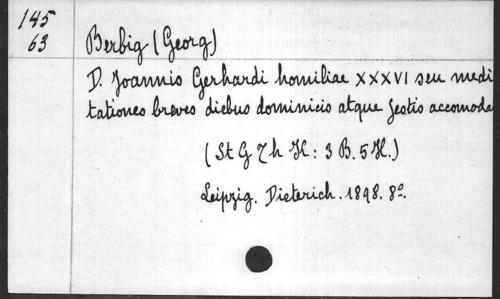 145
63
Berbig (Georg)
D. Joannis Gerhardi homiliae XXXVI seu medi
tationes breves diebus dominicis atque festis accomoda
(St G Th K: 3 B. 5 H.)
Leipzig. Dieterich. 1898. 8º.